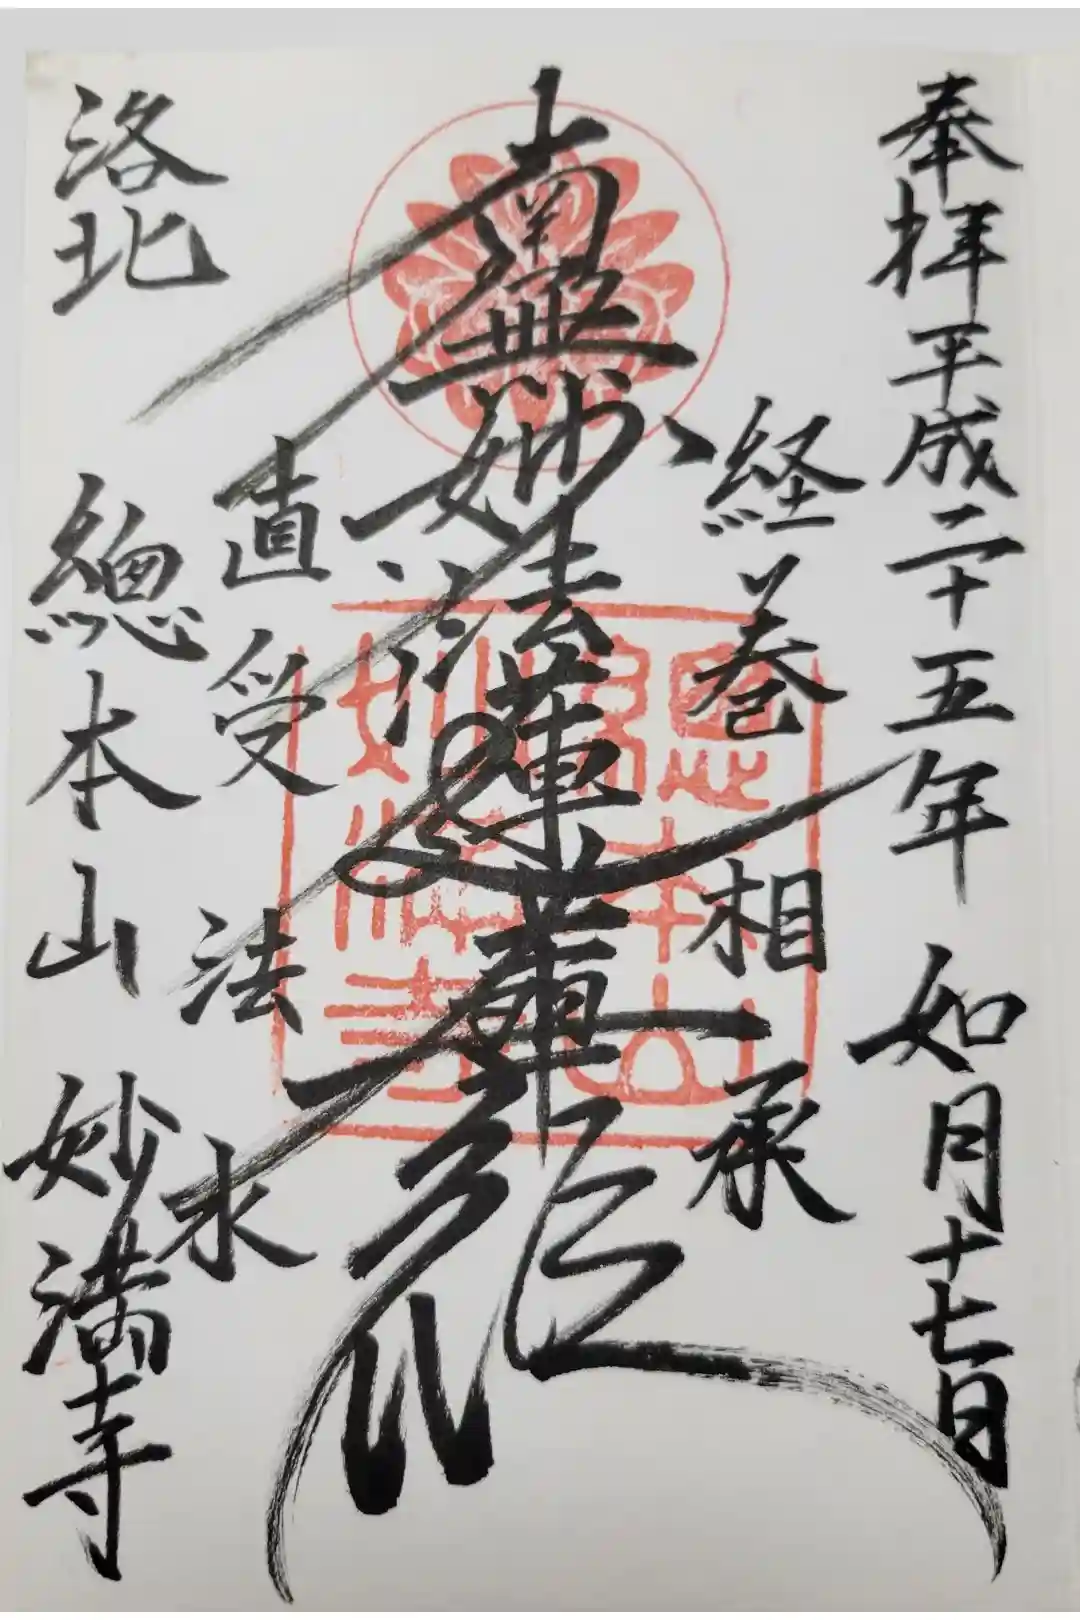 奉拝 平成二十五年 如月十七日
経巻相承
南無妙法蓮華経
直受法水
洛北 總本山 妙満寺
總本山妙満寺